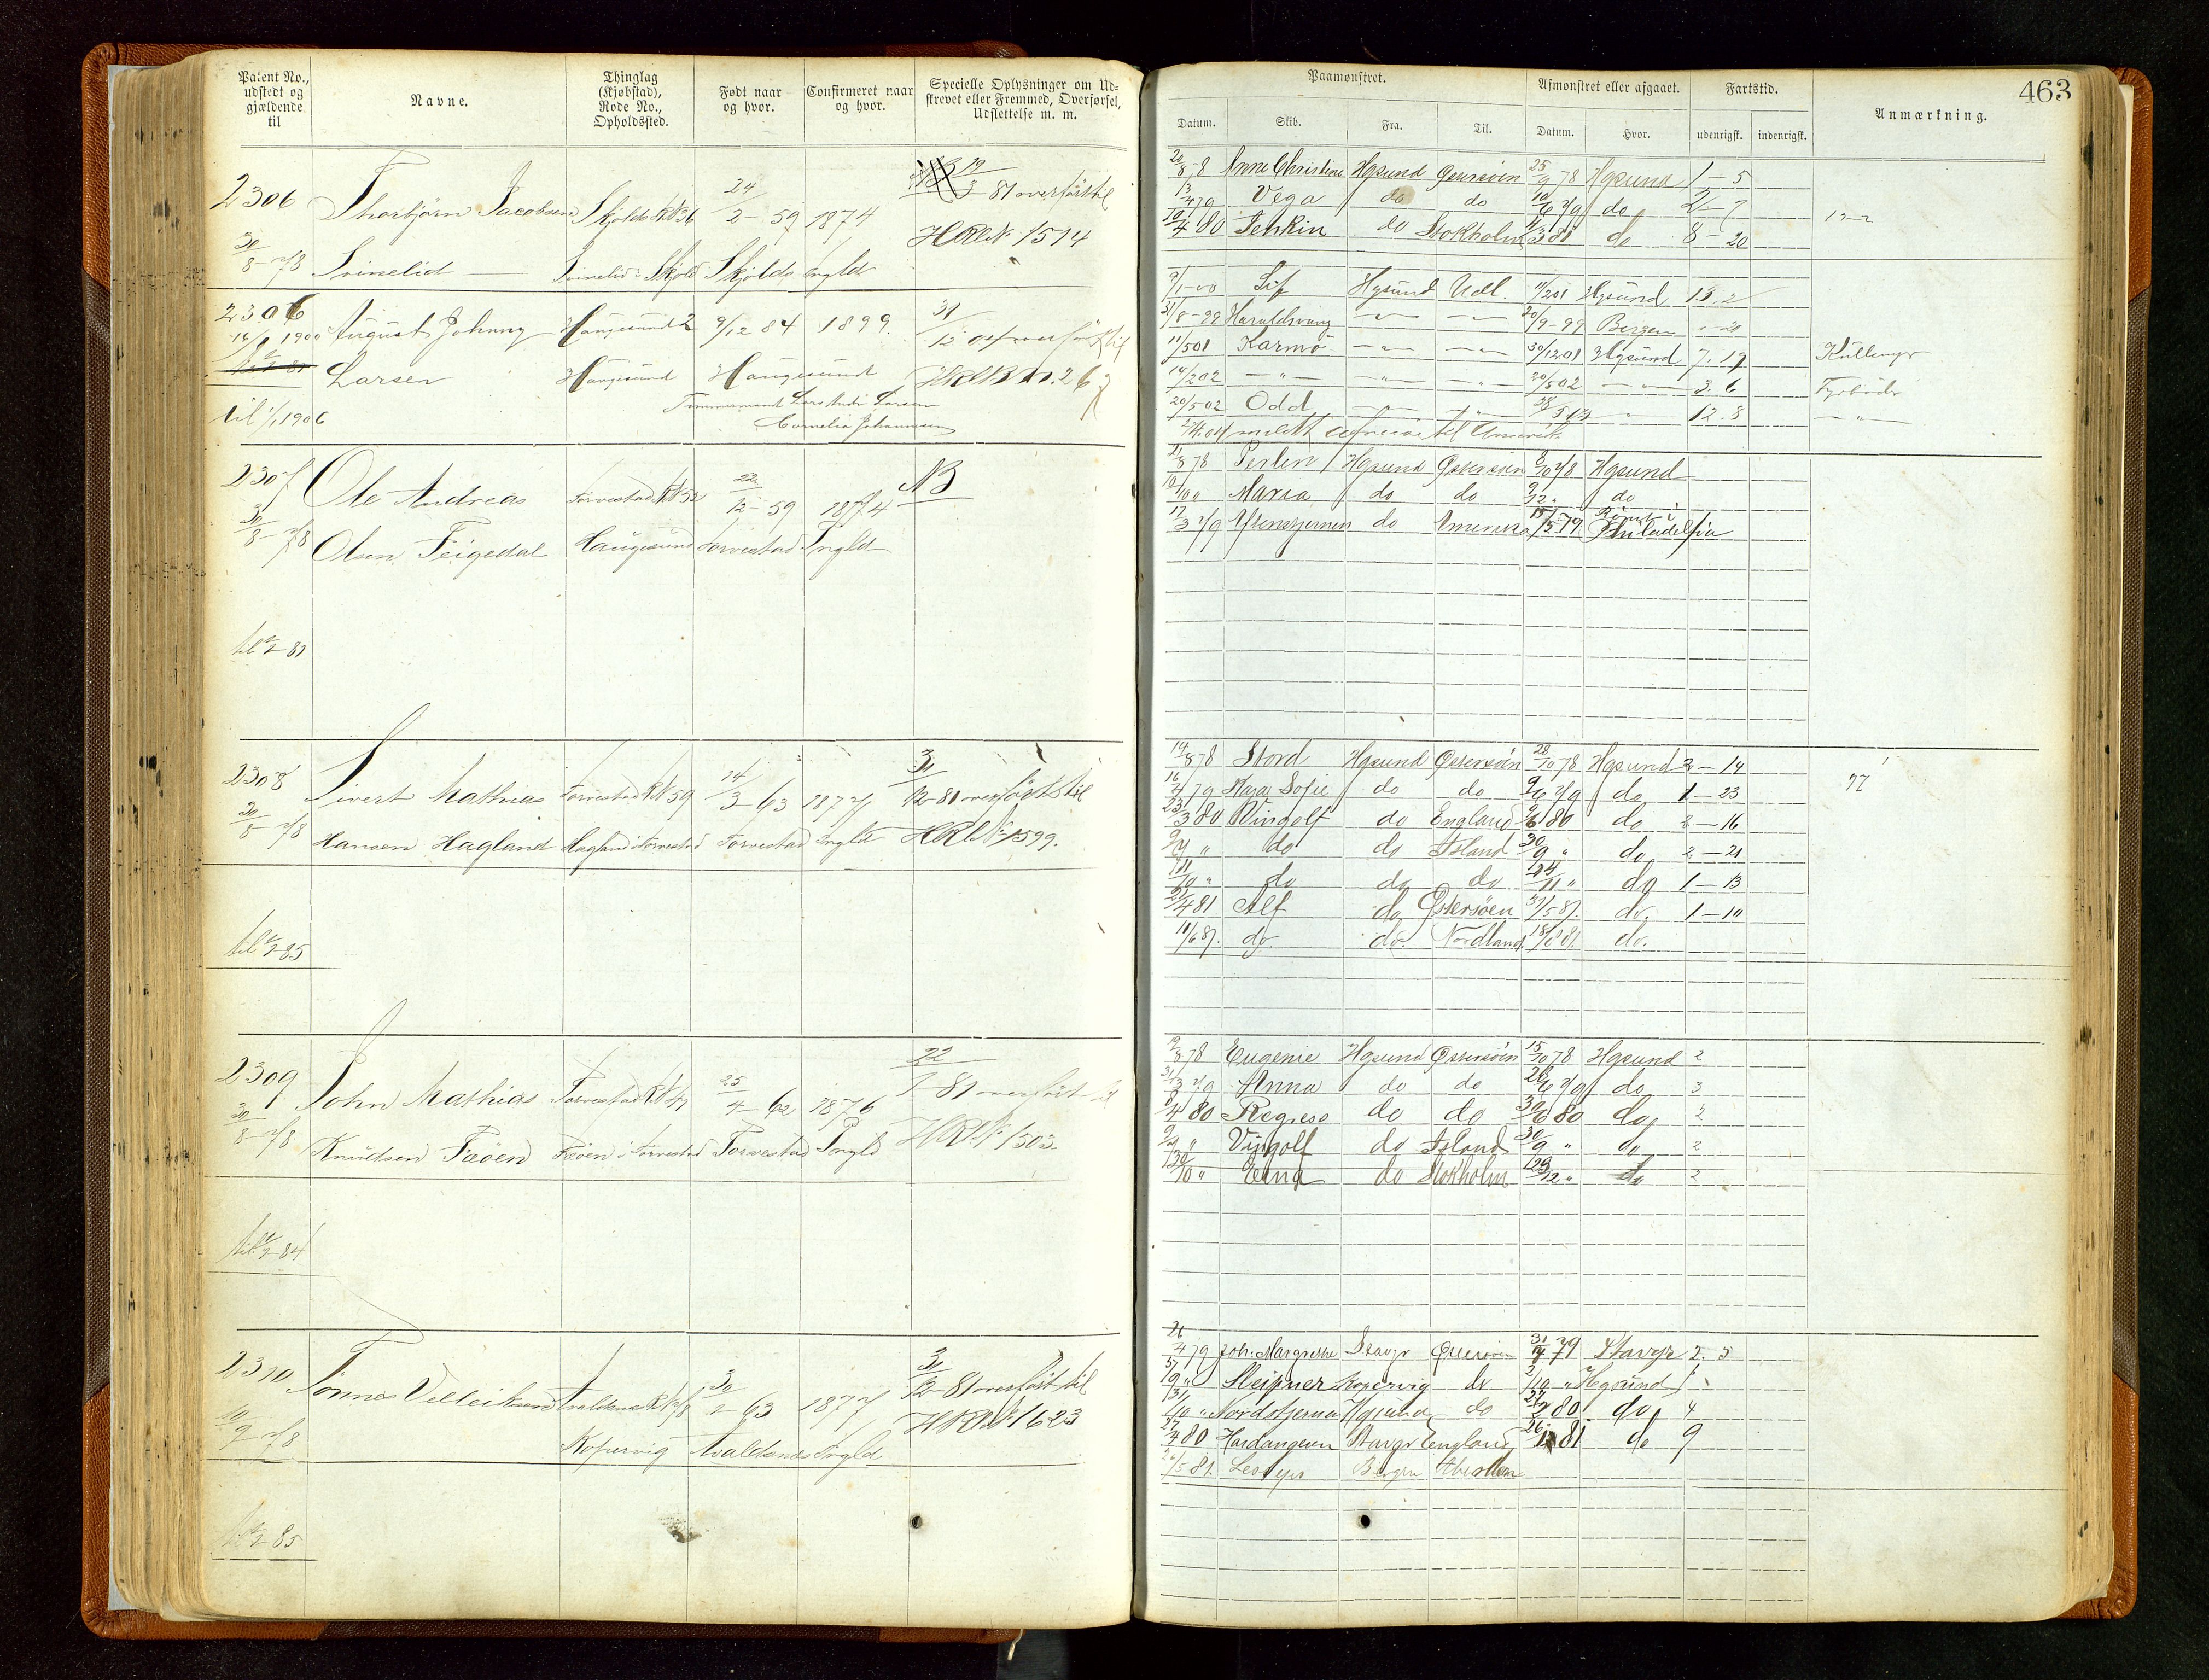 Patent No., udstedt og gjældende til
Navne.
Thinglag (Kjøbstad), Rode No., Opholdssted.
Født naar og hvor.
Confirmeret naar og hvor.
Specielle Oplysninger om Udskrevet eller Fremmed, Overførsel, Udslettelse m. m.
Paamønstret.
Afmønstret eller afgaaet.
Fartstid.
Anmærkning.
463
Datum. Skib. Fra. Til. Datum. Hvor. udenrigsk. indenrigsk.
2306 Thorbjörn Jacobsen Skjolds RN 36 24/2-59 1874 19/3 81 overført til
HRN 1514
30/8-78 Svinelid Svinelid i Skjold Skjolds Ingld
20/8 78 Anna Christine Hgsund Østersøen 25/9 78 Hgsund 1-5
13/4 79 Vega do do 10/6 79 do 2-7
10/4 80 Jenkin do Stokholm 4/3 81 do 8-20
2306 August Johnny Haugesund 2 9/12 84 1899. 31/12 04 overført til
1900 Larsen Haugesund Haugesund
Tømmermand Lars Larsen
Cornelia Johannesen
til 1/1 1906
9/1-00 Sif Hgsund Udl. 11/201 Hgsund 13.2
31/8-99 Haraldsvang 20/9-99 Bergen
11/501 Karmø 30/1201 Hgsund 7.19 Kullemper
14/202 -"- 20/502 3.6 Fyrbøder
20/502 Odd 12.8 -"-
meldt afreise til Amerik
2307 Ole Andreas Torvestad RN 52 22/12-59 1874 NB
30/8-78 Olsen Feigedal Haugesund Torvestad Ingld
til 1/2 81
21/8 78 Perlen Hgsund Østersøen 8/10 78 Hgsund
Maria do do do
17/3 79 Aftenstjernen do Amerika 15/5 79. Rømt i Philadelfia
2308 Sivert Mathias Torvestad RN 59 14/3 63 1877 31/12-81 overført til
30/8-78 Hansen Hagland Hagland i Torvestad Torvestad Ingld HRN 1599.
til 1/2 85
14/8 78 Stord Hgsund Østersøen 28/10 78 Hgsund 2-14
16/4 79 Hara Sofie do do 9/6 79 do 1-23
23/3 80 Vingolf do England 9/6 80 do 2-16
9/7 " do do Island 30/9 " do 2-21
11/10 " do do do 24/11 " do 1-13
21/4 81 Alf do Østersøen 31/5 81. do. 1-10
11/6 81. do. do. Nordland 18/8 81. do.
2309 John Mathias Torvestad RN 41 25/4-62 1876 22/1-81 overført til
30/8-78 Knudsen Fæøen Fæøen i Torvestad Torvestad Ingld HRN 1303.
til 1/2-84
19/8 78 Eugenie Hgsund Østersøen 15/10 78 Hgsund 2
31/3 79 Anna do do 26/6 79 do 3
8/4 80 Regress do do 30/6 80 do 2
9/7 " Vingolf do Island 30/9 " do 2
13/10 " Edna do Stokholm 29/12 " do 2
2310 Tönnes Velleiksen Avaldsnes RN 78 30/1-63 1877 31/12-81 overført til
10/9-78 Kopervig Avaldsnes Ingld HRN 1623
til 1/2 85
26/4 79 Joh: Margrethe Stavgr Østersøen 31/7 79 Stavgr 2.5
5/9 " Sleipner Kopervig do 2/10 " Hgsund 1
31/10 " Nordstjernen Hgsund do 27/2 80 do 4
27/4 80 Hardangeren Stavgr England 26/1 81 do 9
26/5 81. Lesseps Bergen